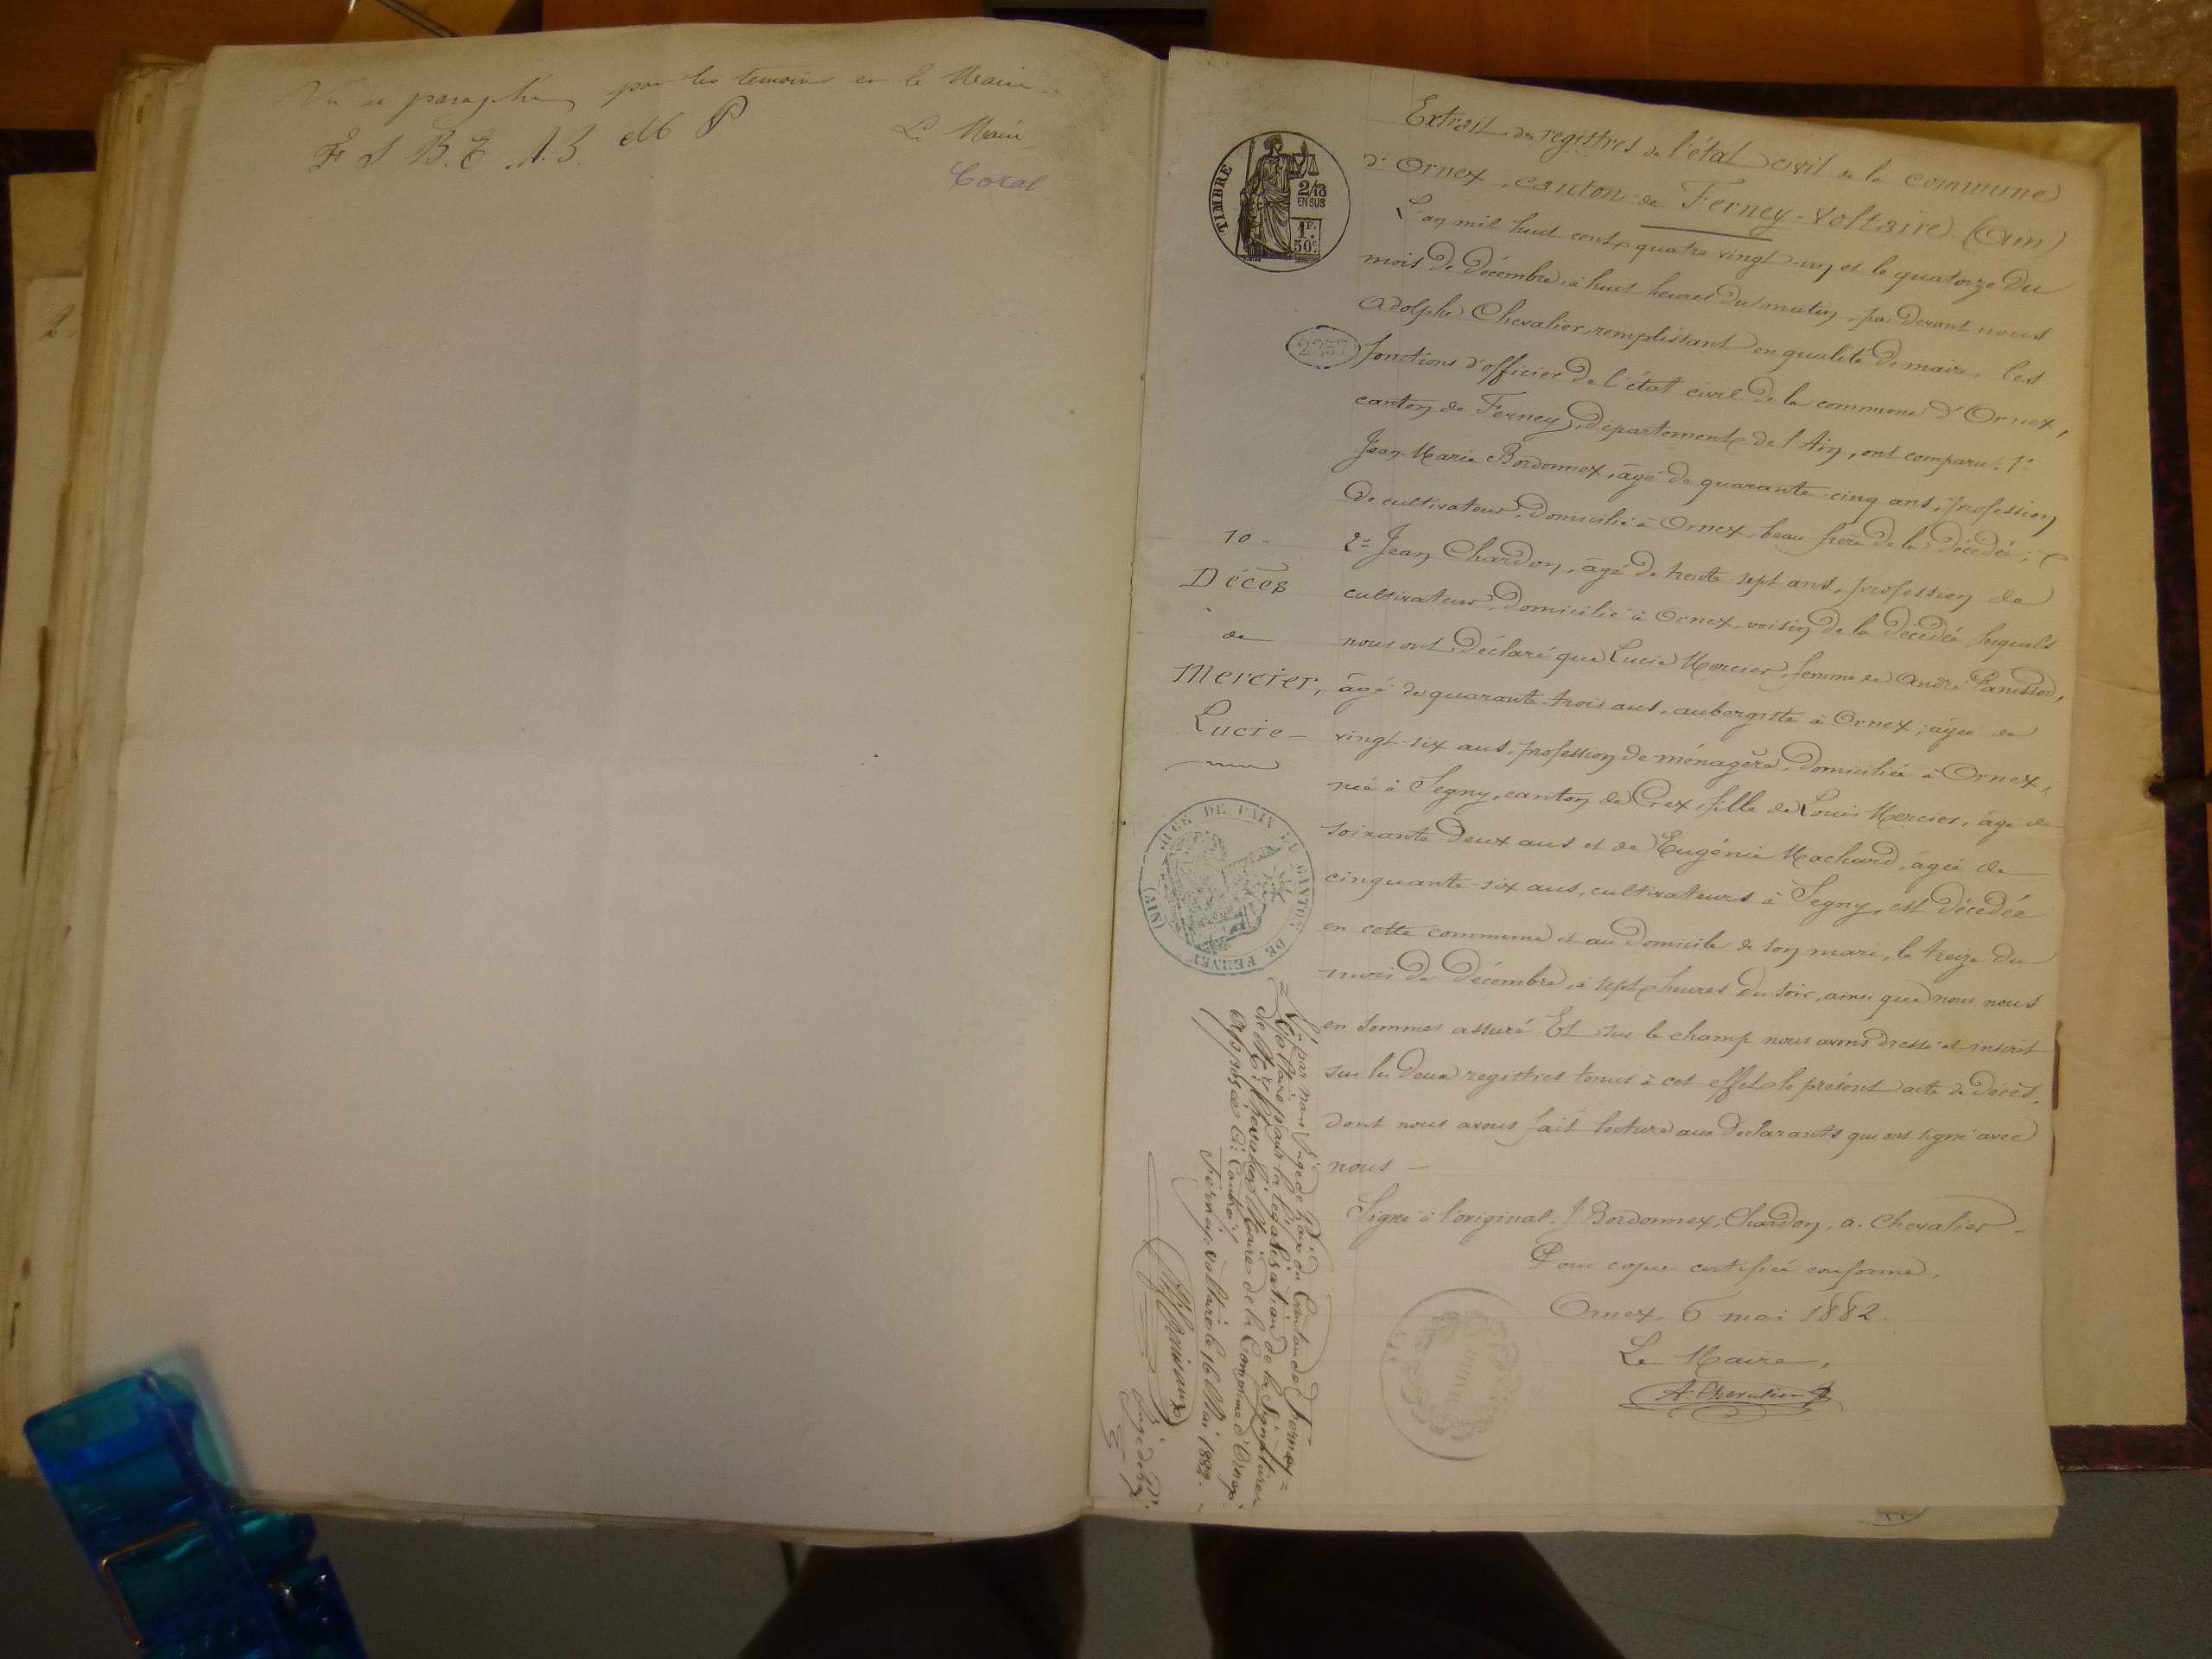 Vu et paraphé par les témoins et le Maire
F S B. E A. B. M P
Le Maire
Coral
TIMBRE
2/10
EN SUS
1F.
50c
2257
Extrait des registres de l'état civil de la commune
d'Ornex, canton de Ferney-Voltaire (Ain)
L'an mil huit cent quatre vingt-un et le quatorze du
mois de décembre, à huit heures du matin, par devant nous
Adolphe Chevalier, remplissant en qualité de maire, les
fonctions d'officier de l'état civil de la commune d'Ornex,
canton de Ferney, département de l'Ain, ont comparu: 1º
Jean Marie Bordonnex, âgé de quarante-cinq ans, profession
de cultivateur, domicilié à Ornex, beau frère de la décédée;
2º Jean Chardon, âgé de trente-sept ans, profession de
cultivateur, domicilié à Ornex, voisin de la décédée, lesquels
nous ont déclaré que Lucie Mercier, femme de André Panissod,
âgé de quarante-trois ans, aubergiste à Ornex; âgée de
vingt-six ans, profession de ménagère, domiciliée à Ornex,
née à Segny, canton de Gex, fille de Louis Mercier, âgé de
soixante deux ans et de Eugénie Machard, âgée de
cinquante-six ans, cultivateurs à Segny, est décédée
en cette commune et au domicile de son mari, le treize du
mois de Décembre, à sept heures du soir, ainsi que nous nous
en sommes assuré. Et sur le champ nous avons dressé et inscrit
sur les deux registres tenus à cet effet le présent acte de décès,
dont nous avons fait lecture aux déclarants qui ont signé avec
nous —
Signé à l'original. J Bordonnex, Chardon, a. Chevalier -
Pour copie certifiée conforme.
Ornex, 6 mai 1882.
Le Maire,
A. Chevalier
10 -
Décès
de
Mercier,
Lucie -
JUGE DE PAIX DU CANTON DE FERNEY
(AIN)
Vu par nous Juge de Paix du Canton de Ferney-
Voltaire pour la légalisation de la Signature
de Mr Chevalier Maire de la Commune d'Ornex
apposée Ci-Contre,
Ferney-Voltaire le 16 Mai 1882. -
Juge de Paix
MAIRIE